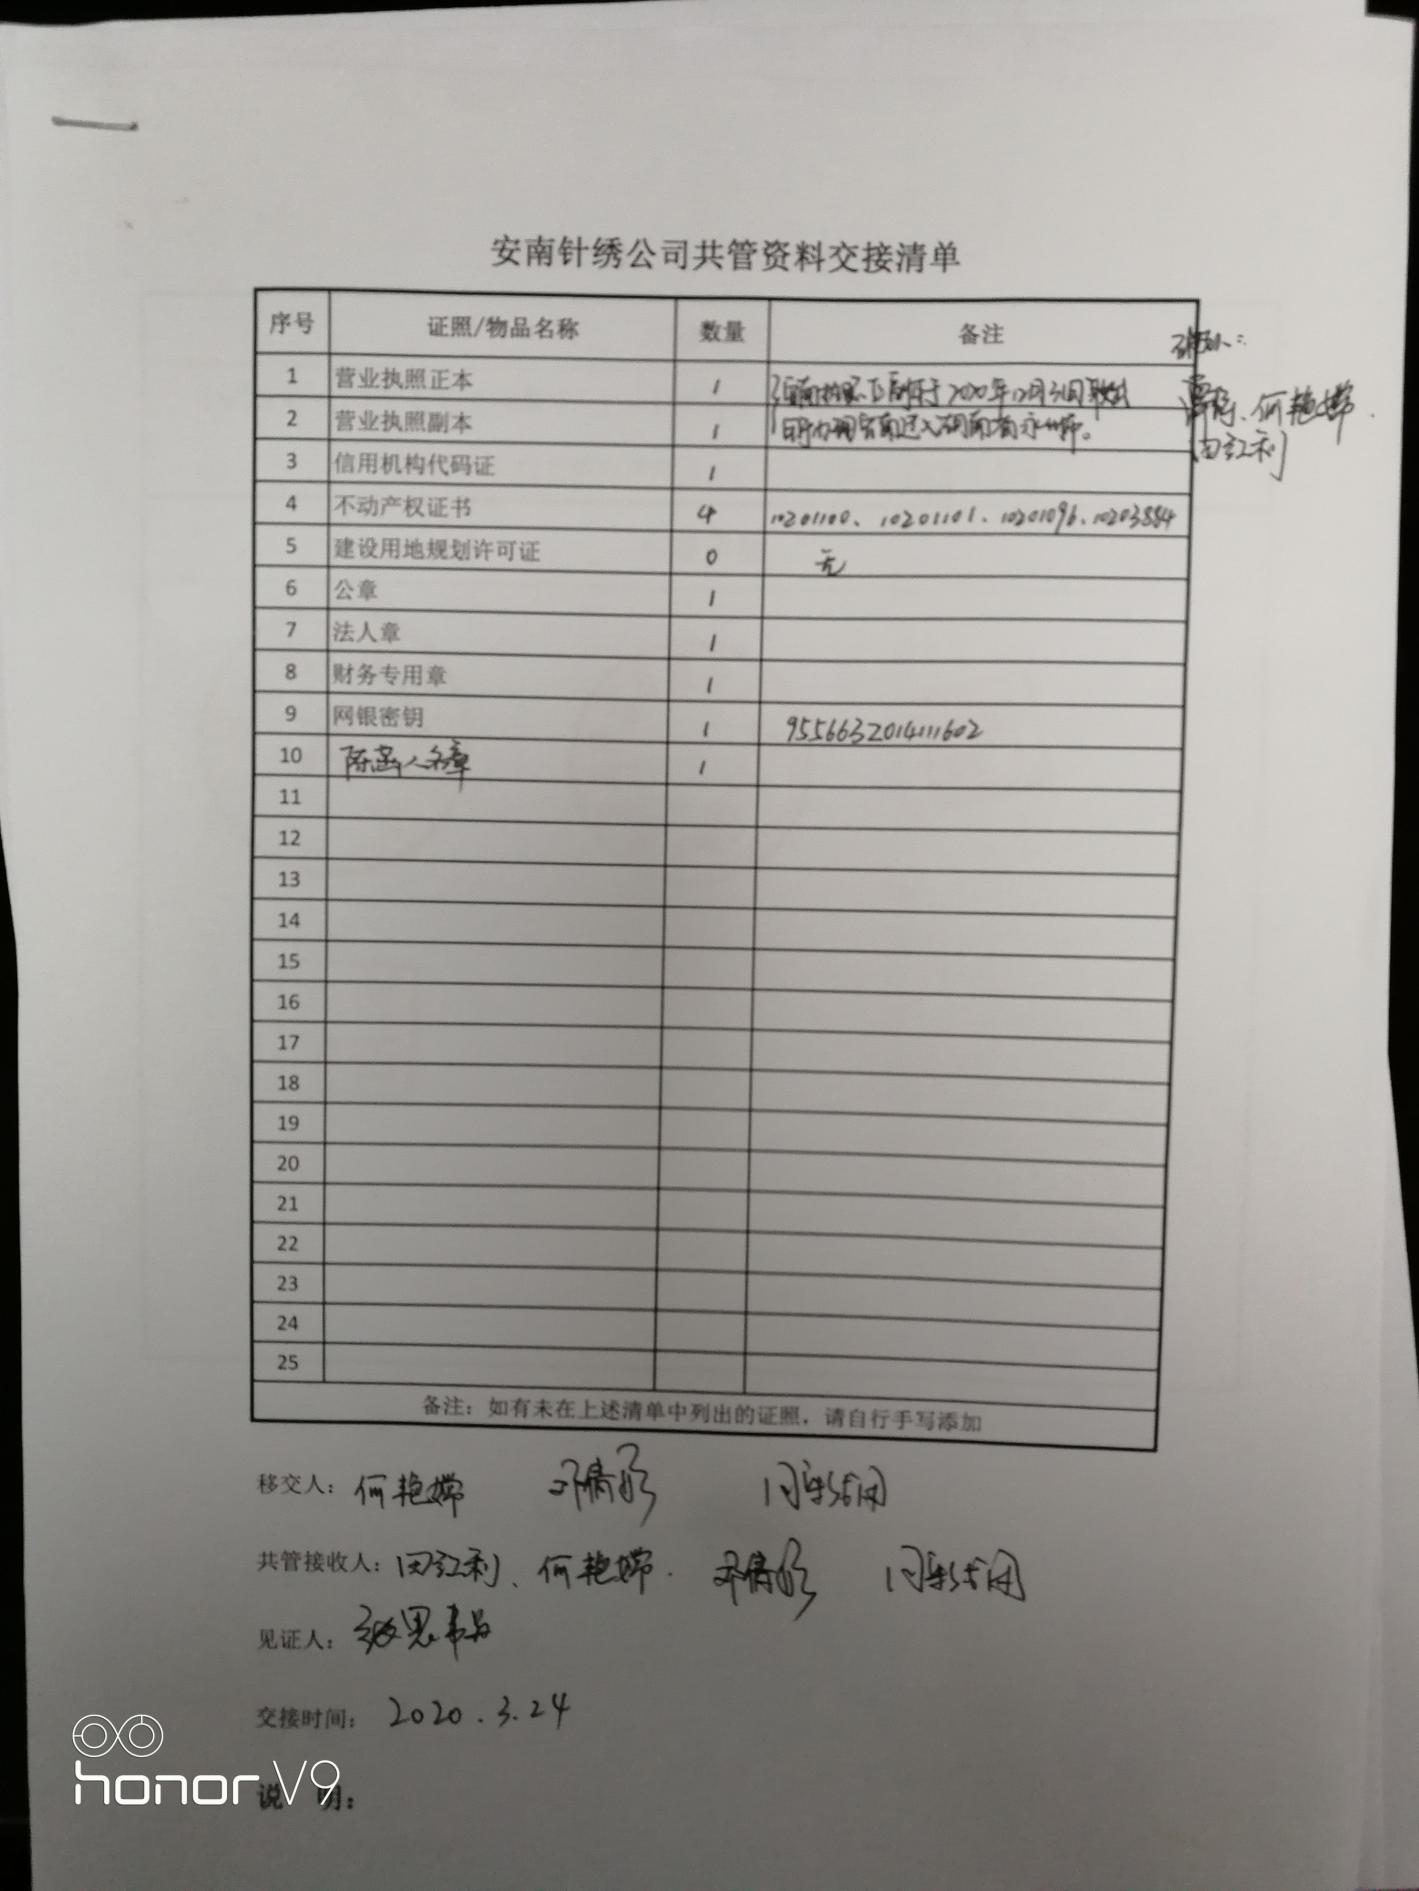 安南针绣公司共管资料交接清单
序号 证照/物品名称 数量 备注
1 营业执照正本 1
2 营业执照副本 1
何艳嫦
田红利
3 信用机构代码证 1
4 不动产权证书 4 10201100、10201101、10201096、10203884
5 建设用地规划许可证 0 无
6 公章 1
7 法人章 1
8 财务专用章 1
9 网银密钥 1 9556632014111602
10 人名章 1
11
12
13
14
15
16
17
18
19
20
21
22
23
24
25
备注：如有未在上述清单中列出的证照，请自行手写添加
移交人：何艳嫦
共管接收人：田红利、何艳嫦
见证人：
交接时间：2020.3.24
说 明：
honor V9